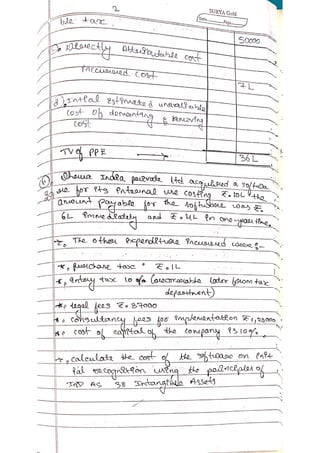 2
SURYA Gold
Date Page
ble tax.
50000
Directly Attributable cost
incurred cost
7L
d) Initial Estimated unavoidable
cost of dismantling & Removing
cost
TV of PPE
36L
India private ltd acquired a softwa
re for its internal use costing ₹.10L the
amount payable for the software was ₹.
6L immediately and ₹.4L in one year time.
The other expenditure incurred were:-
*, purchase tax ₹.1L
*, entry tax 10% (recoverable later from tax
department)
*, legal fees ₹.87000
*, consultancy fees for implementation ₹1,20000
*, cost of capital of the company is 10%.
calculate the cost of the software on init
ial recognition using the principles of
IND AS 38 Intangible Assets